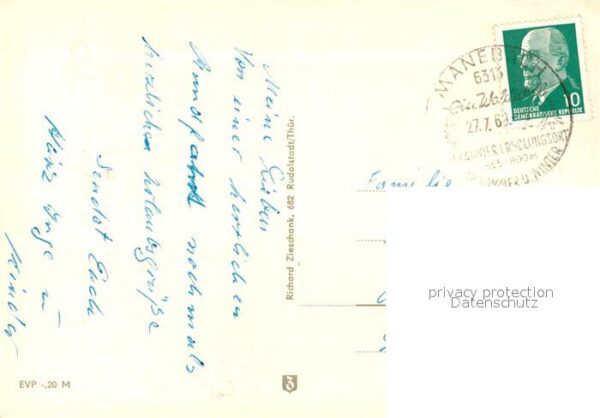 Meine Lieben
Von einer herrlichen
Rundfahrt nochmals
herzlichen Urlaubsgrüße
Sendet Euch
Inge u
Kinder
Richard Zieschank, 682 Rudolstadt/Thür.
EVP -,20 M
MANEBACH
6313
27.7.6
ERHOLUNGSORT
SOMMER U. WINTER
DEUTSCHE
DEMOKRATISCHE REPUBLIK
10
Familie
privacy protection
Datenschutz